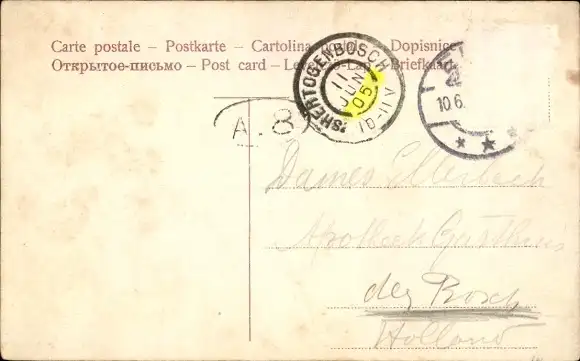 Carte postale – Postkarte – Cartolina – Dopisnice
Открытое-письмо – Post card –
'SHERTOGENBOSCH
11
JUN
05
10-11V
10.6.
A. 8
Dames
Apotheek Gasthuis
den Bosch
Holland